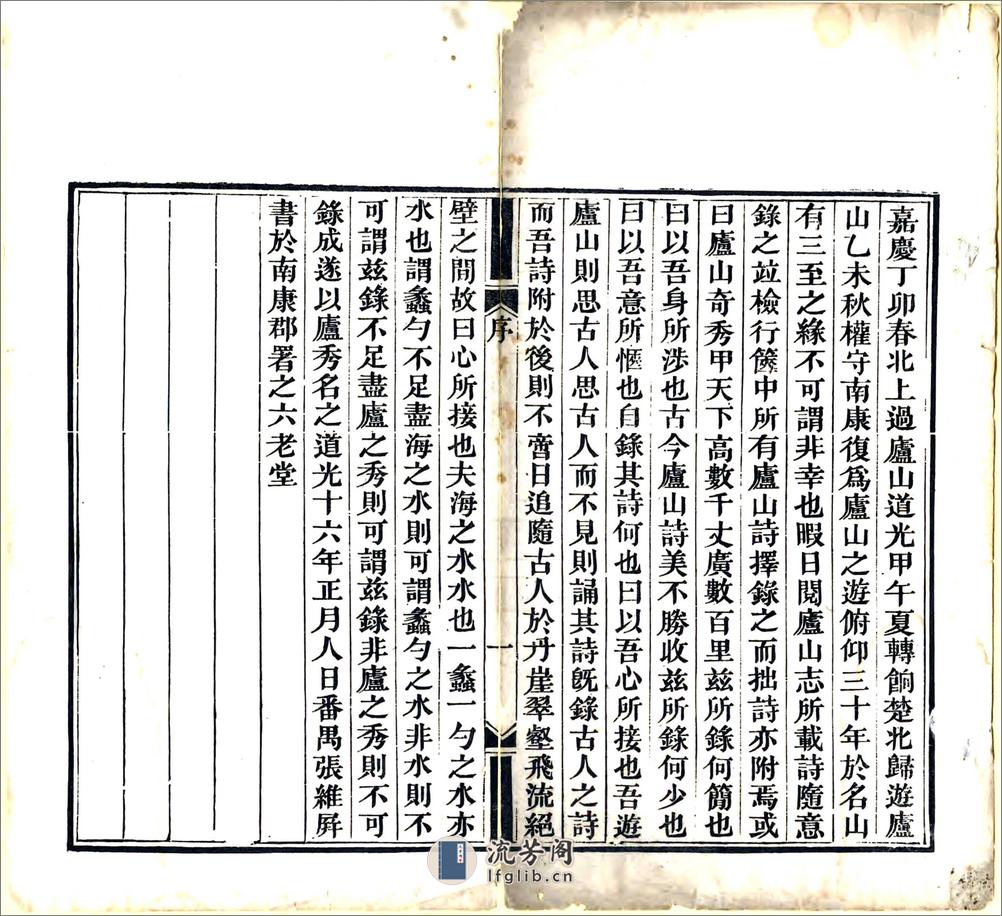 嘉慶丁卯春北上過廬山道光甲午夏轉餉楚北歸遊廬
山乙未秋權守南康復爲廬山之遊俯仰三十年於名山
有三至之緣不可謂非幸也暇日閱廬山志所載詩隨意
錄之竝檢行篋中所有廬山詩擇錄之而拙詩亦附焉或
曰廬山奇秀甲天下高數千丈廣數百里茲所錄何簡也
曰以吾身所涉也古今廬山詩美不勝收茲所錄何少也
曰以吾意所愜也自錄其詩何也曰以吾心所接也吾遊
廬山則思古人思古人而不見則誦其詩旣錄古人之詩
而吾詩附於後則不啻日追隨古人於丹崖翠壑飛流絕
序
一
壁之間故曰心所接也夫海之水水也一蠡一勺之水亦
水也謂蠡勺不足盡海之水則可謂蠡勺之水非水則不
可謂茲錄不足盡廬之秀則可謂茲錄非廬之秀則不可
錄成遂以廬秀名之道光十六年正月人日番禺張維屛
書於南康郡署之六老堂
流芳阁
lfglib.cn